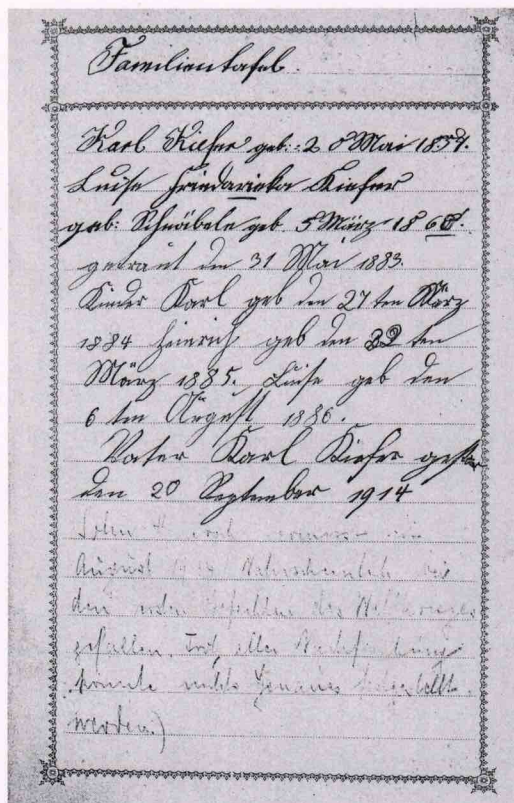 Familientafel.
Karl Kiefer geb: 28 Mai 1857.
Luise Friedarieka Kiefer
geb: Schnäbele geb. 5 März 1860.
getraut den 31 Mai 1883.
Kinder Karl geb den 27 ten März
1884 Heinrich geb den 29 ten
März 1885. Luise geb den
6 ten August 1886.
Vater Karl Kiefer gestor
den 20 September 1914
Sohn
August Wahrscheinlich bei
den ersten Gefechten des Weltkrieges
gefallen. Trotz aller Nachforschung
konnte nichts Genaues festgestellt
werden.)